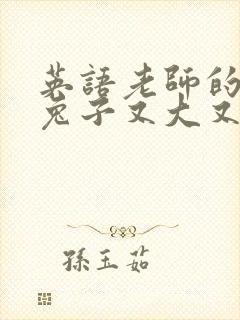 英語老師的
兔子又大又
孫玉茹